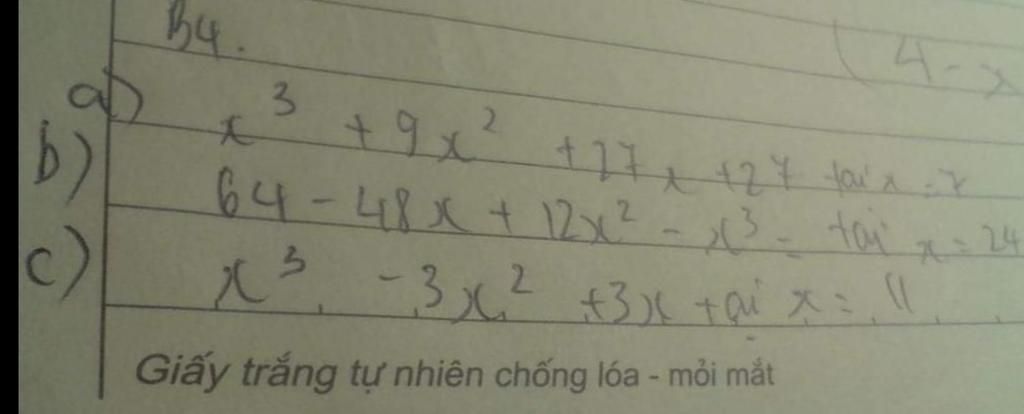 B4.
(4-x
a) x³ + 9x² + 27x + 27 tại x = 7
b) 64 - 48x + 12x² - x³ = tại x = 24
c) x³ - 3x² + 3x tại x = 11
Giấy trắng tự nhiên chống lóa - mỏi mắt